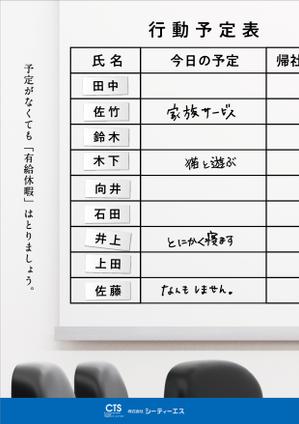 行動予定表
氏名 今日の予定 帰社
田中
佐竹 家族サービス
鈴木
木下 猫と遊ぶ
向井
石田
井上 とにかく寝ます
上田
佐藤 なんもしません。
予定がなくても「有給休暇」はとりましょう。
CTS 株式会社 シーティーエス